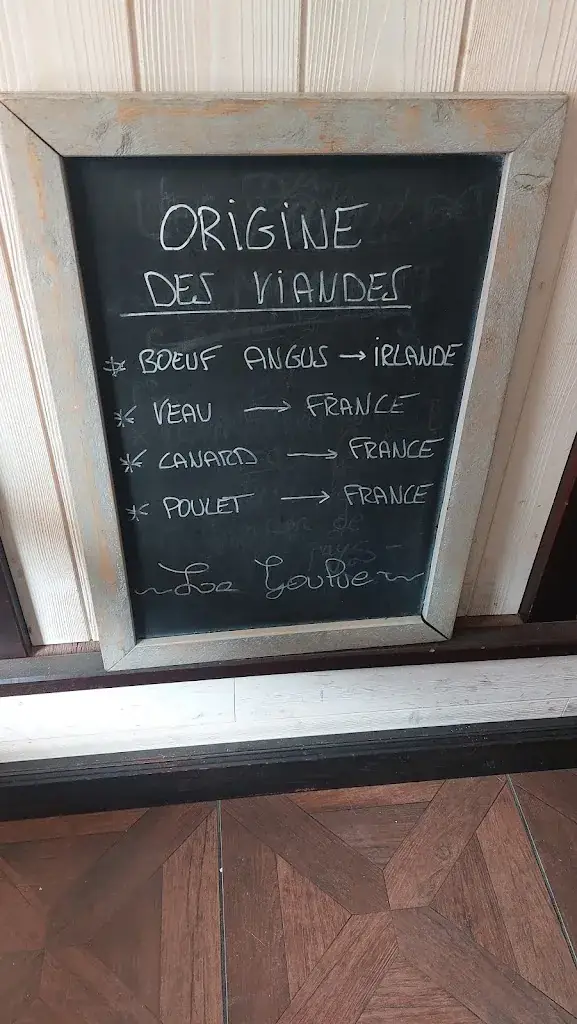 ORIGINE
DES VIANDES
* BOEUF ANGUS → IRLANDE
* VEAU → FRANCE
* CANARD → FRANCE
* POULET → FRANCE
~ La Goulue ~